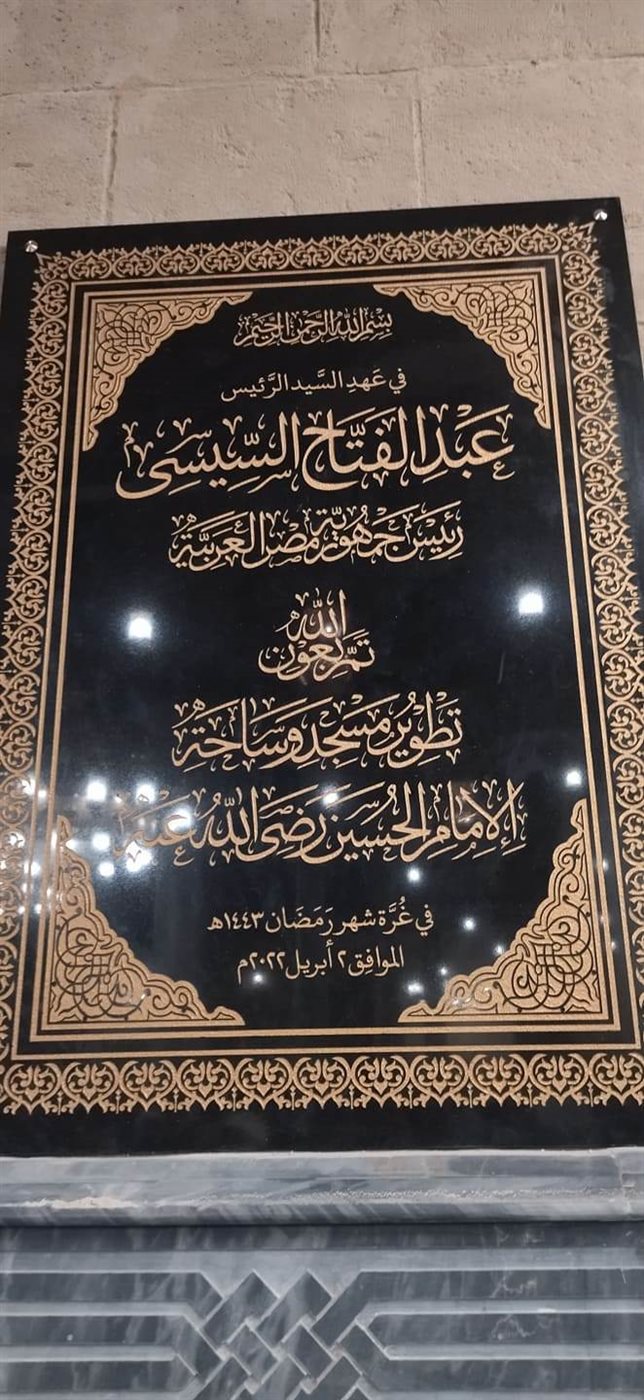 بِسْمِ اللهِ الرَّحْمَنِ الرَّحِيمِ
في عَهدِ السَّيدِ الرَّئيس
عَبْدِ الفَتَّاحِ السِّيسِى
رَئِيسِ جُمْهُورِيَّةِ مِصْرَ العَرَبِيَّةِ
تَمَّ بِعَوْنِ اللهِ
تَطْوِيرُ مَسْجِدِ وَسَاحَةِ
الإِمَامِ الحُسَيْنِ رَضِىَ اللهُ عَنْهُ
في غُرَّة شهر رَمَضَان ١٤٤٣هـ
الموافِق ٢ أبريل ٢٠٢٢م